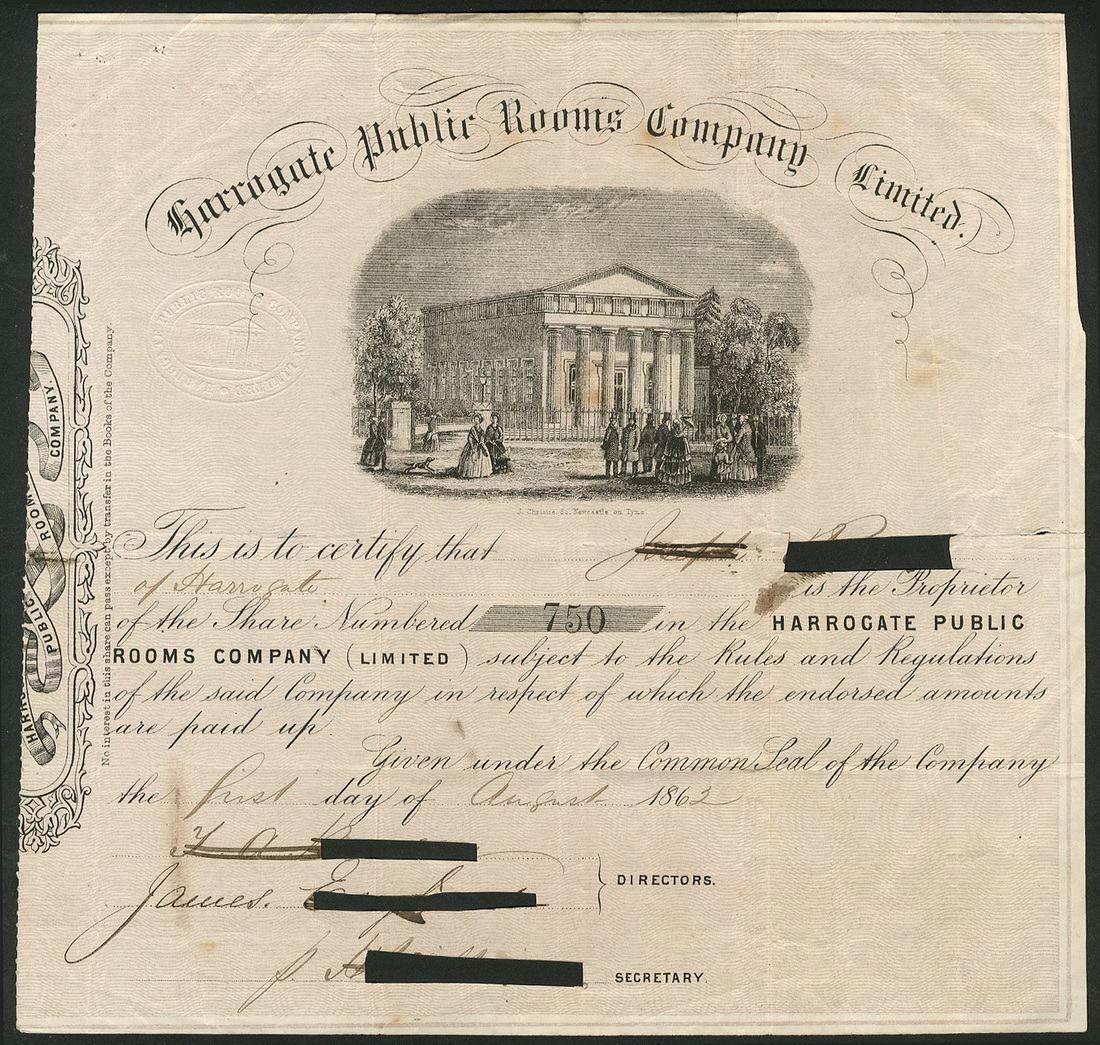 Harrogate Public Rooms Company Limited.
HARROGATE PUBLIC ROOMS COMPANY LIMITED
COMPANY.
ROOM
PUBLIC
HARRO
No interest in this share can pass except by transfer in the Books of the Company.
Newcastle on Tyne
This is to certify that Joseph
of Harrogate is the Proprietor
of the Share Numbered 750 in the HARROGATE PUBLIC
ROOMS COMPANY (LIMITED) subject to the Rules and Regulations
of the said Company in respect of which the endorsed amounts
are paid up.
Given under the Common Seal of the Company
the first day of August 1862
DIRECTORS.
James.
SECRETARY.